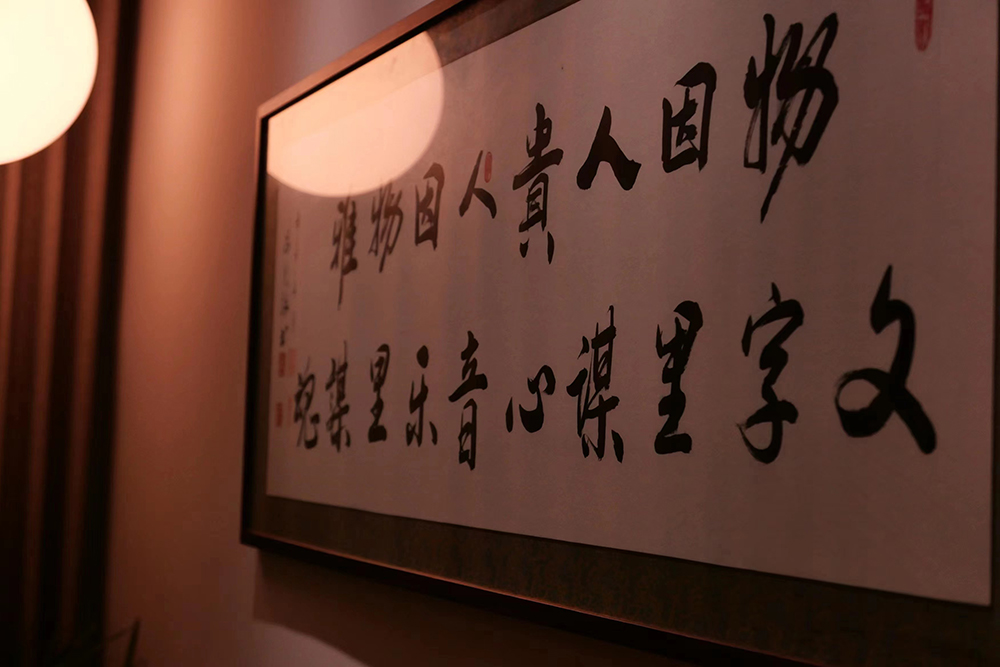 物因人貴人因物雅
文字里谋心音乐里谋魂